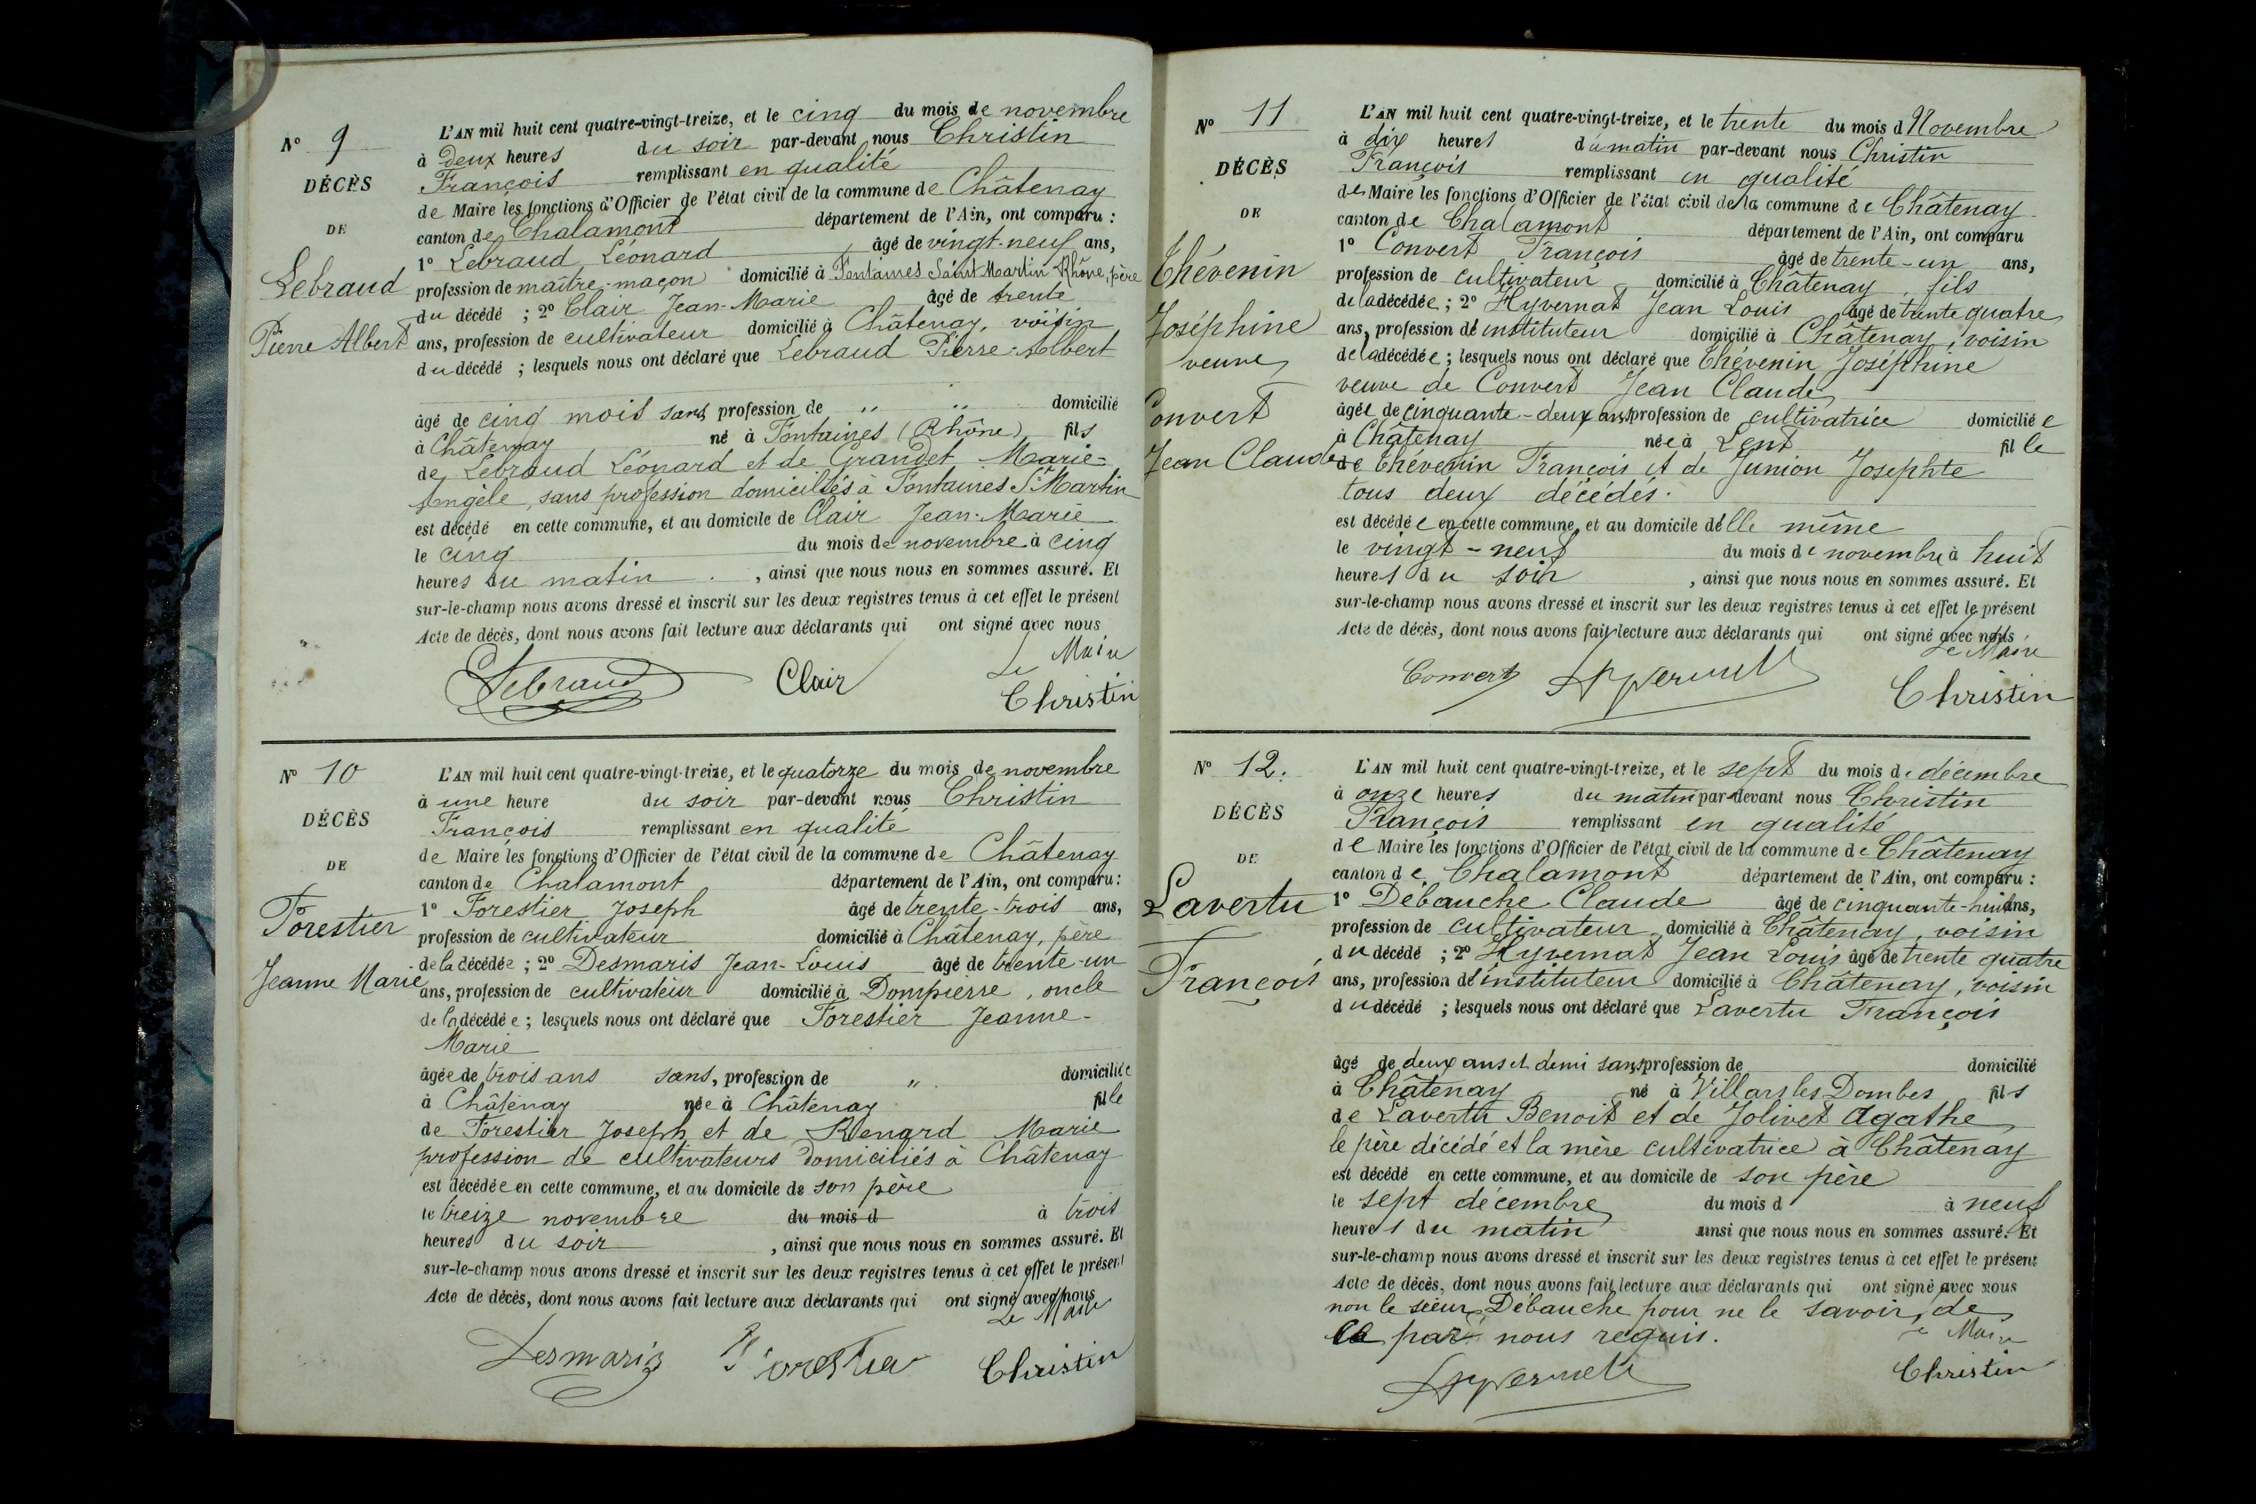 N° 9
DÉCÈS
DE
Lebraud
Pierre Albert
L'AN mil huit cent quatre-vingt-treize, et le cinq du mois de novembre
à deux heures du soir par-devant nous Christin
François remplissant en qualité
de Maire les fonctions d'Officier de l'état civil de la commune de Châtenay
canton de Chalamont département de l'Ain, ont comparu :
1° Lebraud Léonard âgé de vingt-neuf ans,
profession de maître-maçon domicilié à Fontaines Saint Martin Rhône, père
du décédé ; 2° Clair Jean-Marie âgé de trente
ans, profession de cultivateur domicilié à Châtenay, voisin
du décédé ; lesquels nous ont déclaré que Lebraud Pierre-Albert
âgé de cinq mois sans profession de " " domicilié
à Châtenay né à Fontaines (Rhône) fils
de Lebraud Léonard et de Grandet Marie=
Angèle, sans profession domiciliés à Fontaines St Martin
est décédé en cette commune, et au domicile de Clair Jean-Marie
le cinq du mois de novembre à cinq
heures du matin , ainsi que nous nous en sommes assuré. Et
sur-le-champ nous avons dressé et inscrit sur les deux registres tenus à cet effet le présent
Acte de décès, dont nous avons fait lecture aux déclarants qui ont signé avec nous
Le Maire
Lebraud Clair Christin
N° 10
DÉCÈS
DE
Forestier
Jeanne Marie
L'AN mil huit cent quatre-vingt-treize, et le quatorze du mois de novembre
à une heure du soir par-devant nous Christin
François remplissant en qualité
de Maire les fonctions d'Officier de l'état civil de la commune de Châtenay
canton de Chalamont département de l'Ain, ont comparu :
1° Forestier Joseph âgé de trente-trois ans,
profession de cultivateur domicilié à Châtenay, père
de la décédée ; 2° Desmaris Jean-Louis âgé de trente-un
ans, profession de cultivateur domicilié à Dompierre, oncle
de la décédée ; lesquels nous ont déclaré que Forestier Jeanne-
Marie
âgée de trois ans sans, profession de " domiciliée
à Châtenay née à Châtenay fille
de Forestier Joseph et de Renard Marie
profession de cultivateurs domiciliés à Châtenay
est décédée en cette commune, et au domicile de son père
le treize novembre du mois d à trois
heures du soir , ainsi que nous nous en sommes assuré. Et
sur-le-champ nous avons dressé et inscrit sur les deux registres tenus à cet effet le présent
Acte de décès, dont nous avons fait lecture aux déclarants qui ont signé avec nous
Le Maire
Desmaris Forestier Christin
N° 11
DÉCÈS
DE
Thévenin
Joséphine
veuve
Convert
Jean Claude
L'AN mil huit cent quatre-vingt-treize, et le trente du mois d Novembre
à dix heures du matin par-devant nous Christin
François remplissant en qualité
de Maire les fonctions d'Officier de l'état civil de la commune de Châtenay
canton de Chalamont département de l'Ain, ont comparu
1° Convert François âgé de trente-un ans,
profession de cultivateur domicilié à Châtenay, fils
de la décédée ; 2° Hyvernat Jean Louis âgé de trente quatre
ans, profession d'instituteur domicilié à Châtenay, voisin
de la décédée ; lesquels nous ont déclaré que Thévenin Joséphine
veuve de Convert Jean Claude
âgée de cinquante-deux ans profession de cultivatrice domiciliée
à Châtenay née à Lent fille
de Thévenin François et de Junion Josephte
tous deux décédés.
est décédée en cette commune, et au domicile d'elle même
le vingt-neuf du mois de novembre à huit
heures du soir , ainsi que nous nous en sommes assuré. Et
sur-le-champ nous avons dressé et inscrit sur les deux registres tenus à cet effet le présent
Acte de décès, dont nous avons fait lecture aux déclarants qui ont signé avec nous
Le Maire
Convert Hyvernat Christin
N° 12.
DÉCÈS
DE
Lavertu
François
L'AN mil huit cent quatre-vingt-treize, et le sept du mois de décembre
à onze heures du matin par-devant nous Christin
François remplissant en qualité
de Maire les fonctions d'Officier de l'état civil de la commune de Châtenay
canton de Chalamont département de l'Ain, ont comparu :
1° Débauche Claude âgé de cinquante-huit ans,
profession de cultivateur domicilié à Châtenay, voisin
du décédé ; 2° Hyvernat Jean Louis âgé de trente quatre
ans, profession d'instituteur domicilié à Châtenay, voisin
du décédé ; lesquels nous ont déclaré que Lavertu François
âgé de deux ans et demi sans profession de domicilié
à Châtenay né à Villars les Dombes fils
de Lavertu Benoit et de Jolivet Agathe
le père décédé et la mère cultivatrice à Châtenay
est décédé en cette commune, et au domicile de son père
le sept décembre du mois d à neuf
heures du matin ainsi que nous nous en sommes assuré. Et
sur-le-champ nous avons dressé et inscrit sur les deux registres tenus à cet effet le présent
Acte de décès, dont nous avons fait lecture aux déclarants qui ont signé avec nous
non le sieur Débauche pour ne le savoir, de
ce par nous requis.
Le Maire
Hyvernat Christin